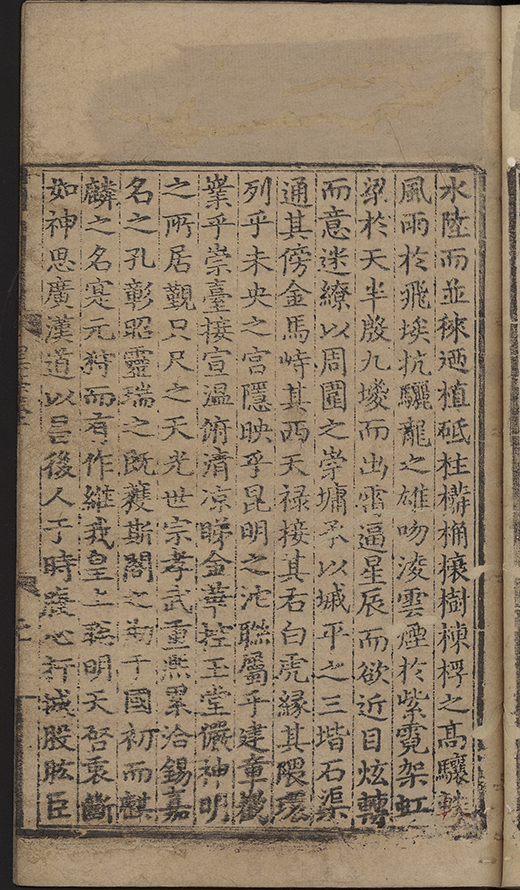 水陸而並徠迺植砥柱欂桷榱樹棟楞之高驤軼
風雨於飛埃抗驪龍之雄吻淩雲煙於紫霓架虹
梁於天半殷九堎而出霤逼星辰而欲近目炫轉
而意迷繚以周圍之崇墉承以墄平之三堦石渠
通其傍金馬峙其西天禄接其右白虎縁其隈環
列乎未央之宮隱映乎昆明之沱聯屬乎建章巀
嶪乎崇臺接宣溫俯清凉睇金華控玉堂儼神明
之所居覲只尺之天光世宗孝武重熙累洽錫嘉
名之孔彰昭靈瑞之旣蒦斯閣之剏于國初而麒
麟之名寔元狩而有作維我皇上聡明天啓衷斷
如神思廣漢道以啚後人于時廢心折減股肱臣